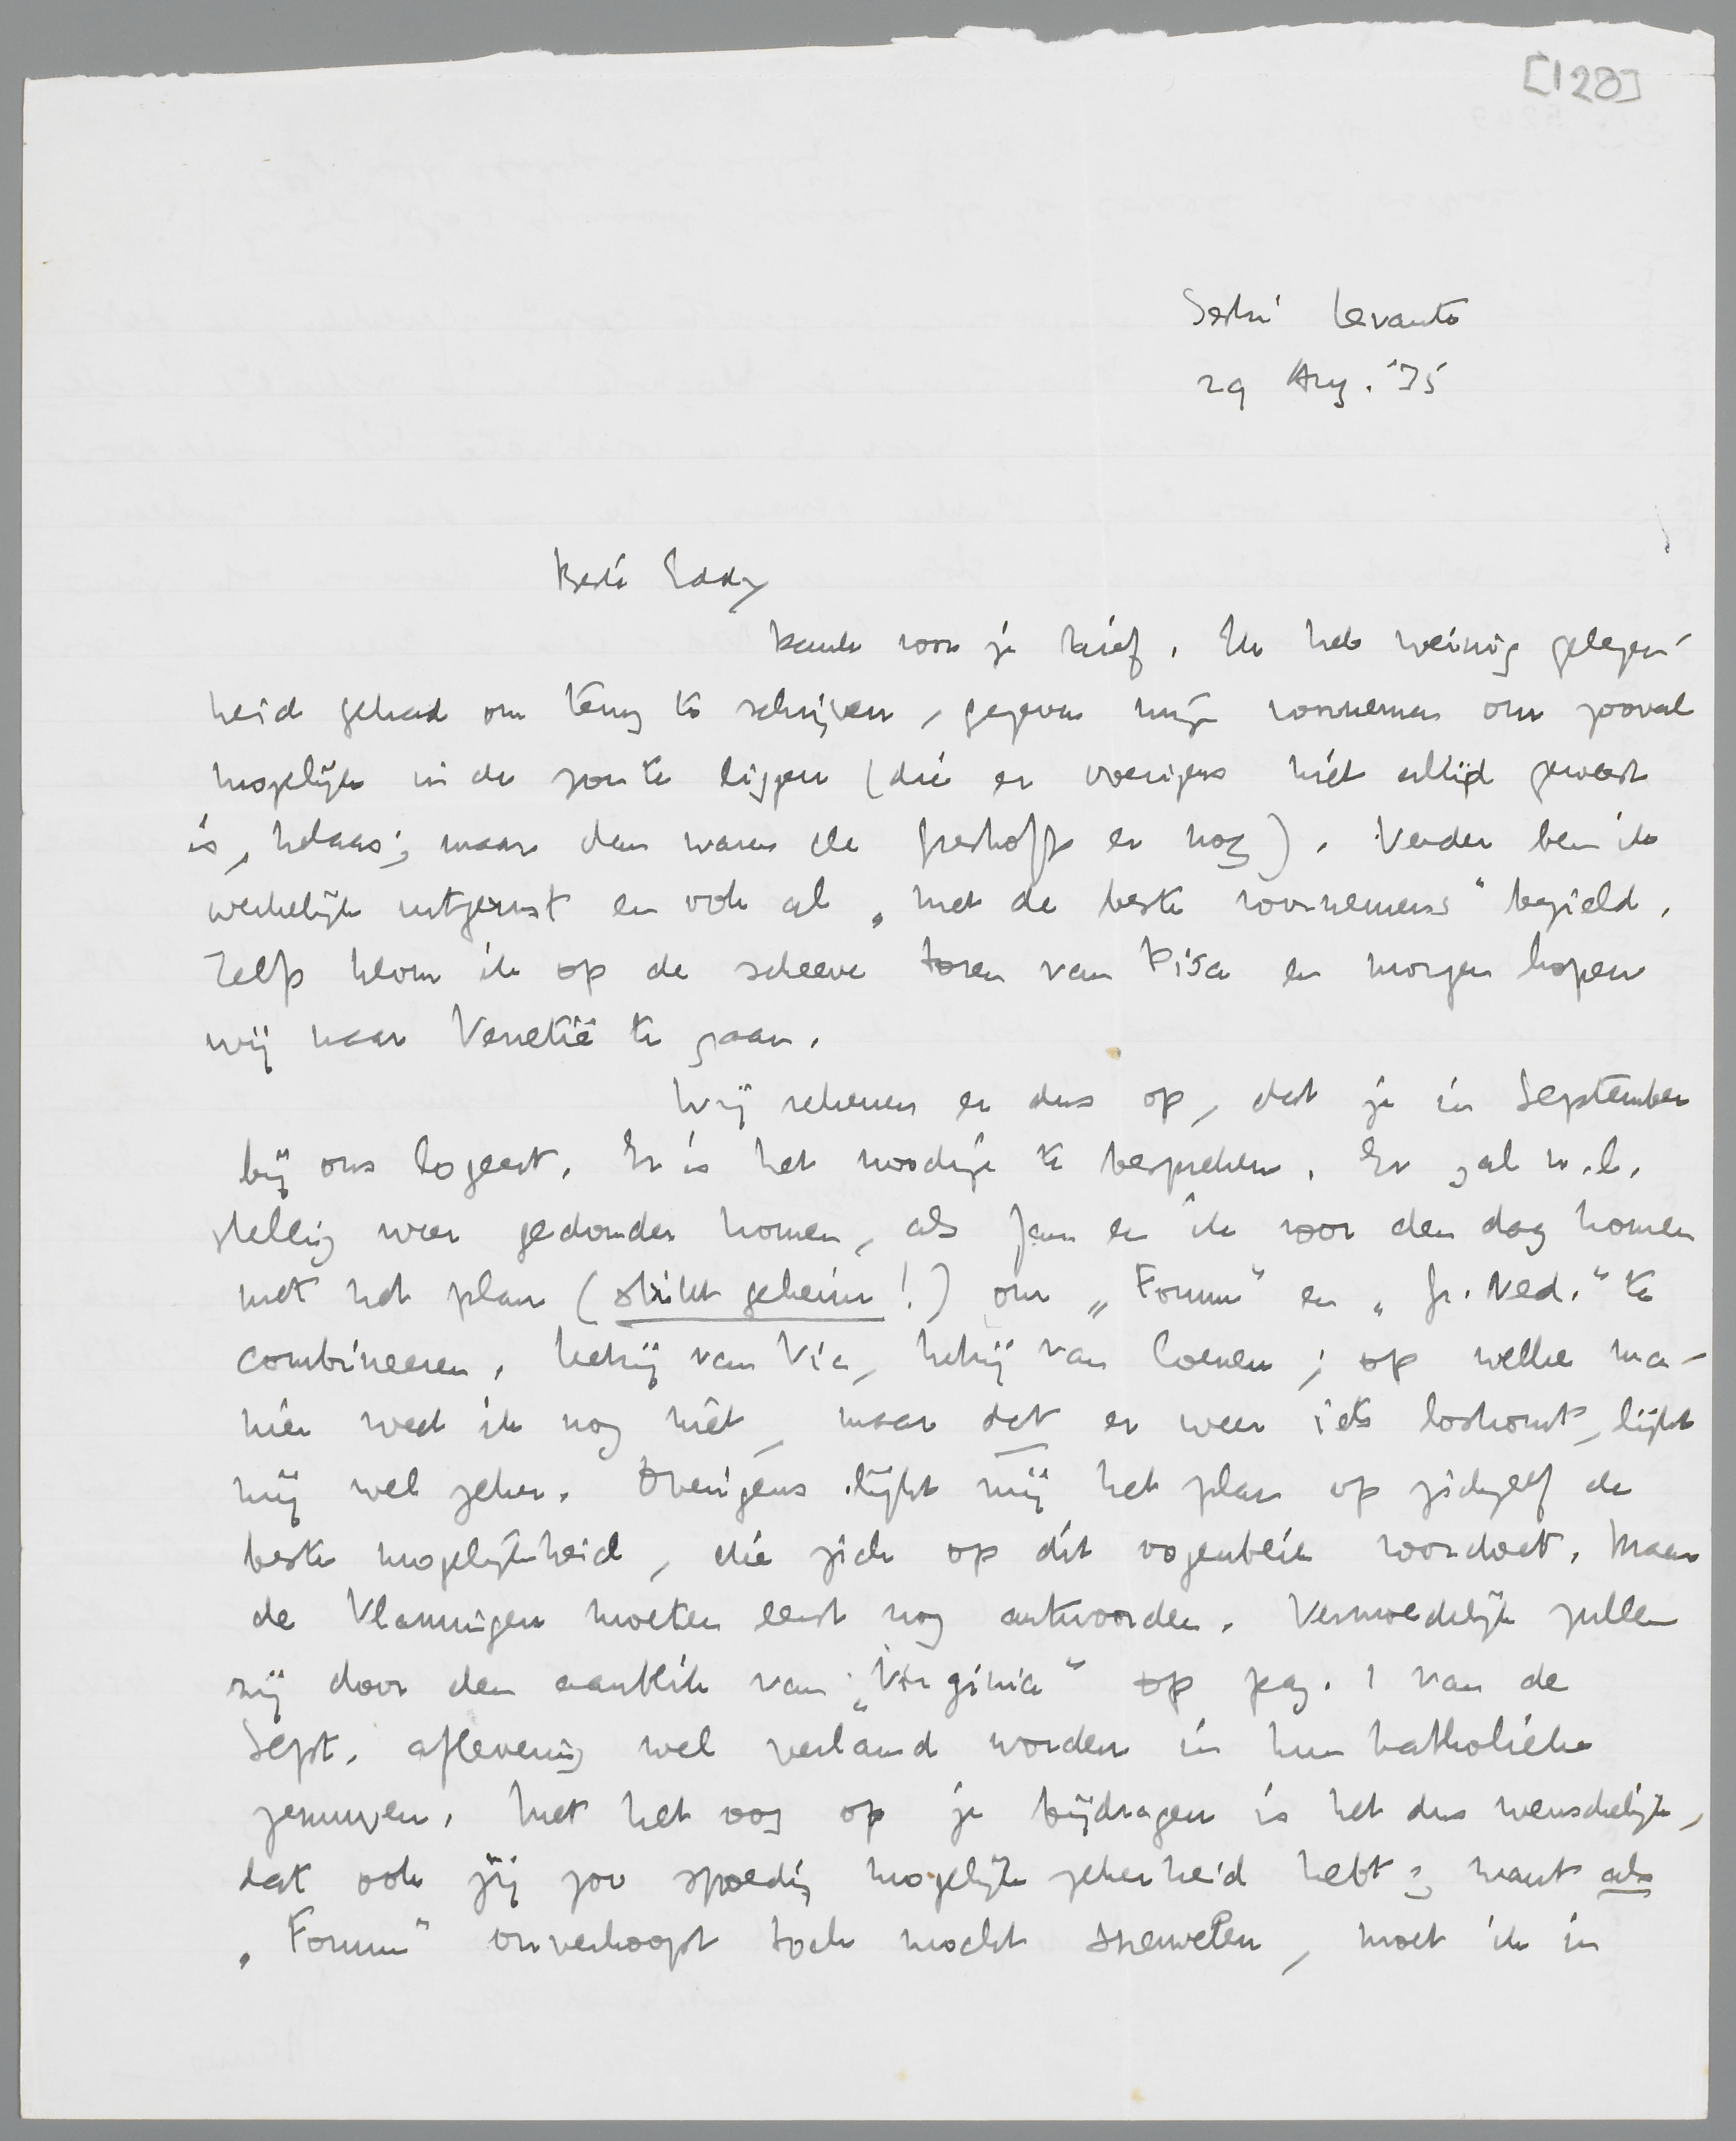 [128]
Sestri Levante
29 Aug. '35
Beste Eddy
Dank voor je brief. Ik heb weinig gelegen-
heid gehad om terug te schrijven, gegeven mijn voornemen om zooveel
mogelijk in de zon te liggen (die er overigens niet altijd geweest
is, helaas; maar dan waren de Greshoffs er nog). Verder ben ik
werkelijk uitgerust en ook al „met de beste voornemens" bezield.
Zelfs klom ik op de scheeve toren van Pisa en morgen hopen
wij naar Venetië te gaan.
Wij rekenen er dus op, dat je in September
bij ons logeert. Er is het noodige te bespreken. Er zal n.l.
stellig weer gedonder komen, als Jan en ik voor den dag komen
met het plan (strikt geheim!) om „Forum" en „Gr. Ned." te
combineeren. Hetzij van Vic, hetzij van Coenen; op welke ma-
nier weet ik nog niet, maar dat er weer iets loskomt, lijkt
mij wel zeker. Overigens lijkt mij het plan op zichzelf de
beste mogelijkheid, die zich op dit oogenblik voordoet. Maar
de Vlamingen moeten eerst nog antwoorden. Vermoedelijk zullen
zij door den aanblik van „Virginia" op pag. 1 van de
Sept. aflevering wel verlamd worden in hun katholieke
zenuwen. Met het oog op je bijdragen is het dus wenschelijk,
dat ook jij zoo spoedig mogelijk zekerheid hebt; want als
„Forum" onverhoopt toch mocht sneuvelen, moet ik in